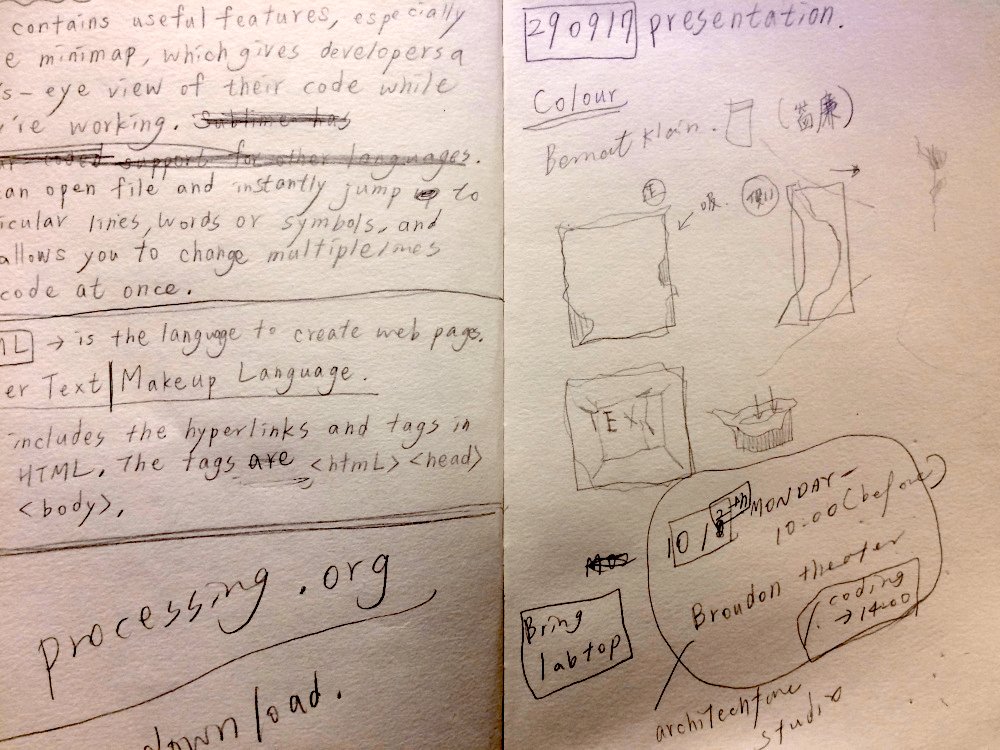 contains useful features, especially
e minimap, which gives developers a
s-eye view of their code while
're working. Sublime has
coded support for other languages.
an open file and instantly jump to
icular lines, words or symbols, and
allows you to change multiple lines
code at once.
ML → is the language to create web pages.
er Text | Makeup Language.
includes the hyperlinks and tags in
HTML. The tags are <html> <head>
<body>,
processing.org
download.
290917 presentation.
Colour
Bernat Klain.
正
TEXT
10/2th MONDAY-
10:00 (before)
Broudon theater
coding
→ 14:00
Bring
labtop
architechture
studio